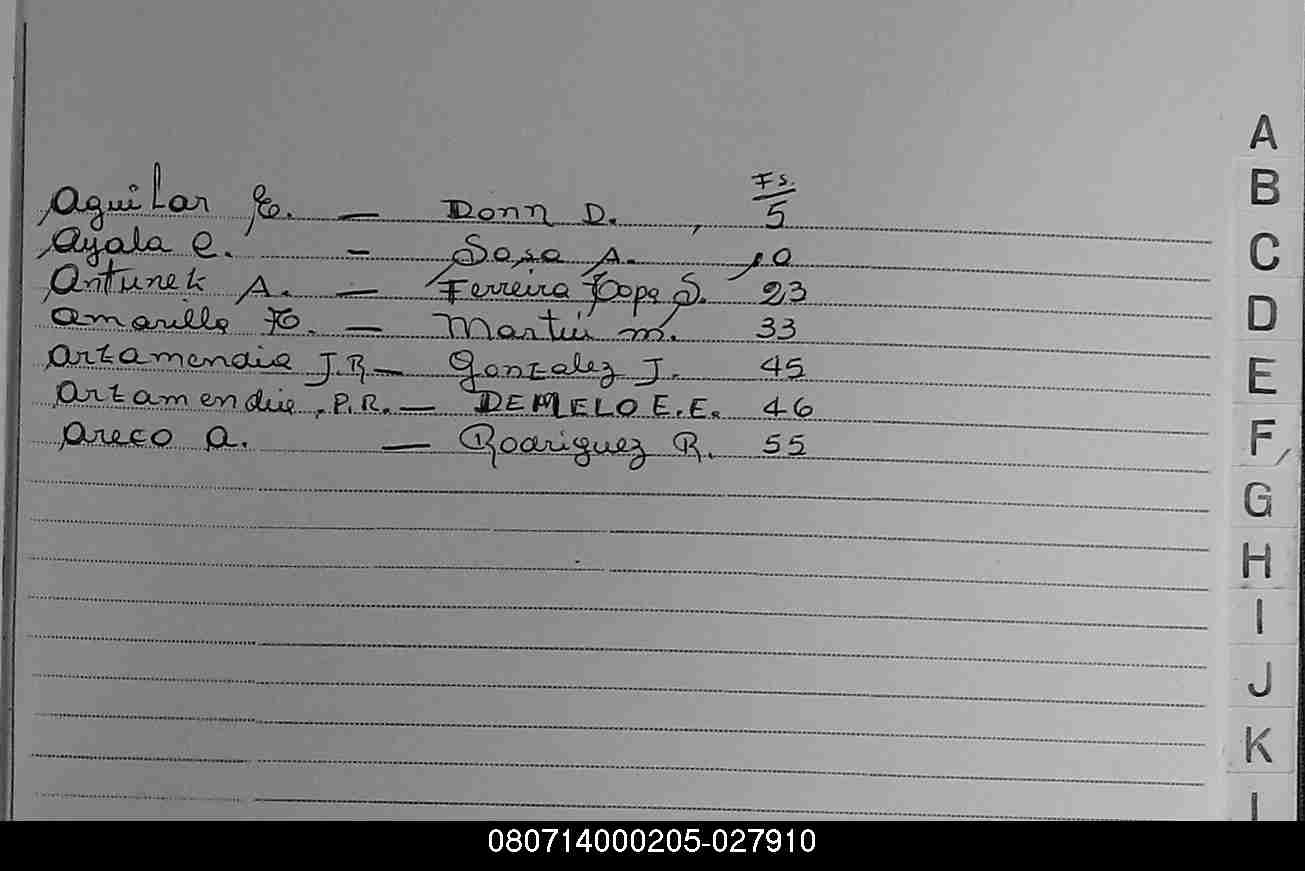 Fs.
Aguilar E. — Donn D. , 5
Ayala C. — Sosa A. 10
Antunez A. — Ferreira Lopez S. 23
Amarillo — Martin m. 33
Artamendia J.R — Gonzalez J. 45
Artamendia, P.R. — DEMELO E.E. 46
Areco A. — Rodriguez R. 55
A
B
C
D
E
F
G
H
I
J
K
080714000205-027910